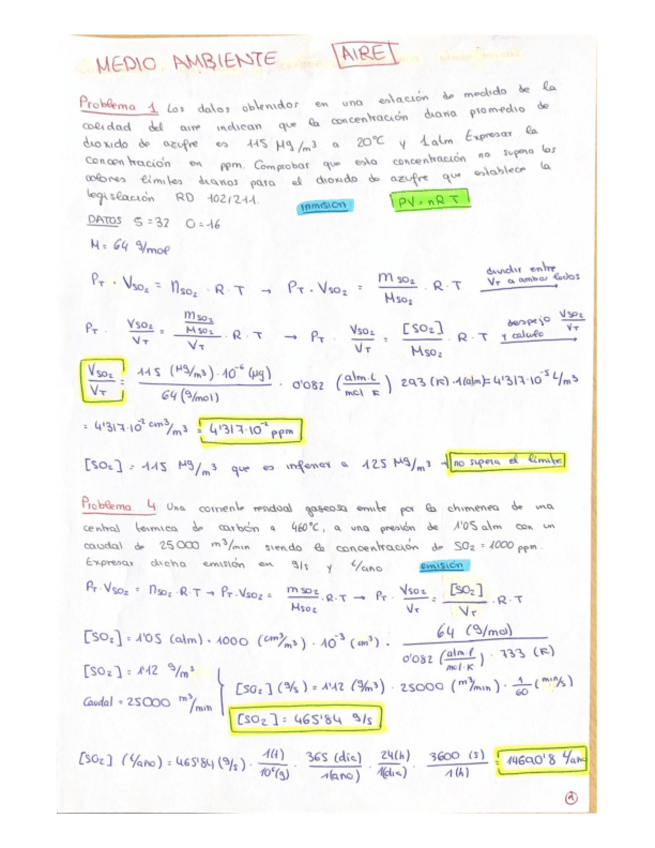 MEDIO AMBIENTE AIRE
Problema 1 Los datos obtenidos en una estación de medida de la
calidad del aire indican que la concentración diaria promedio de
dioxido de azufre es 115 μg/m³ a 20°C y 1 atm. Expresar la
concentración en ppm. Comprobar que esta concentración no supera los
valores límites diarios para el dioxido de azufre que establece la
legislación RD 102/211.
inmisión PV=nRT
DATOS S=32 O=16
M= 64 g/mol
P_T · V_SO₂ = n_SO₂ · R · T → P_T · V_SO₂ = m_SO₂/M_SO₂ · R · T dividir entre V_T a ambos lados
P_T · V_SO₂/V_T = (m_SO₂/M_SO₂)/V_T · R · T → P_T · V_SO₂/V_T = [SO₂]/M_SO₂ · R · T despejo V_SO₂/V_T y calculo
V_SO₂/V_T = 115 (μg/m³) · 10⁻⁶ (μg)/64 (g/mol) · 0'082 (atm·L/mol K) 293 (K) · 1(atm) = 4'317·10⁻⁵ L/m³
= 4'317·10⁻² cm³/m³ = 4'317·10⁻² ppm
[SO₂] = 115 μg/m³ que es inferior a 125 μg/m³ → no supera el límite
Problema 4 Una corriente residual gaseosa emite por la chimenea de una
central termica de carbón a 460°C, a una presión de 1'05 atm con un
caudal de 25000 m³/min siendo la concentración de SO₂ = 1000 ppm.
Expresar dicha emisión en g/s y t/ano. emisión
P_T · V_SO₂ = n_SO₂ · R · T → P_T · V_SO₂ = m_SO₂/M_SO₂ · R · T → P_T · V_SO₂/V_T = [SO₂]/V_T · R · T
[SO₂] = 1'05 (atm) · 1000 (cm³/m³) · 10⁻³ (cm³) · 64 (g/mol)/0'082 (atm·l/mol·K) · 733 (K)
[SO₂] = 1'12 g/m³
Caudal = 25000 m³/min
[SO₂] (g/s) = 1'12 (g/m³) · 25000 (m³/min) · 1/60 (min/s)
[SO₂] = 465'84 g/s
[SO₂] (t/ano) = 465'84 (g/s) · 1(t)/10⁶(g) · 365 (dia)/1(ano) · 24(h)/1(dia) · 3600 (s)/1(h) = 14690'8 t/ano
2